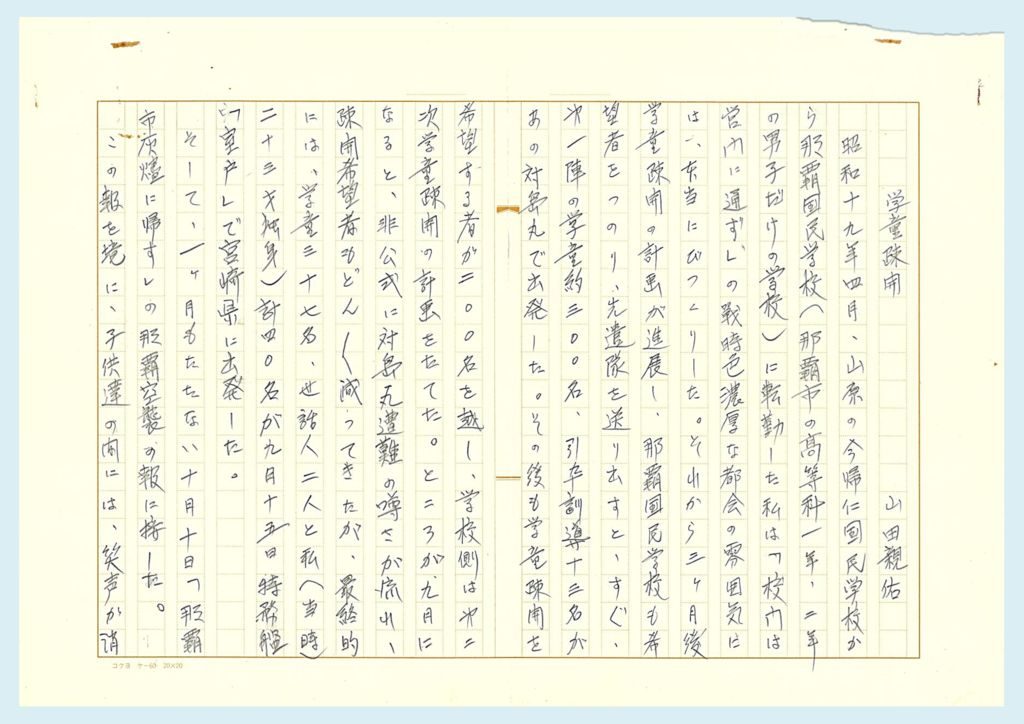 学童疎開　山田親佑
昭和十九年四月、山原の今帰仁国民学校か
ら那覇国民学校（那覇市の高等科一年、二年
の男子だけの学校）に転勤した私は「校門は
営門に通ず」の戦時色濃厚な都会の雰囲気に
は、本当にびっくりした。それから三ヶ月後
学童疎開の計画が進展し、那覇国民学校も希
望者をつのり、先遣隊を送り出すと、すぐ、
第一陣の学童約三〇〇名、引率訓導十三名が
あの対島丸で出発した。その後も学童疎開を
希望する者が二〇〇名を越し、学校側は第二
次学童疎開の計画をたてた。ところが九月に
なると、非公式に対島丸遭難の噂さが流れ、
疎開希望者もどん〱減ってきたが、最終的
には、学童三十七名、世話人二人と私（当時
二十三才独身）計四〇名が九月十五日特務艦
「室戸」で宮崎県に出発した。
そして、一ヶ月もたたない十月十日「那覇
市灰燼に帰す」の那覇空襲の報に接した。
この報を境に、子供達の間には、笑声が消
コクヨ　ケー60　20×20